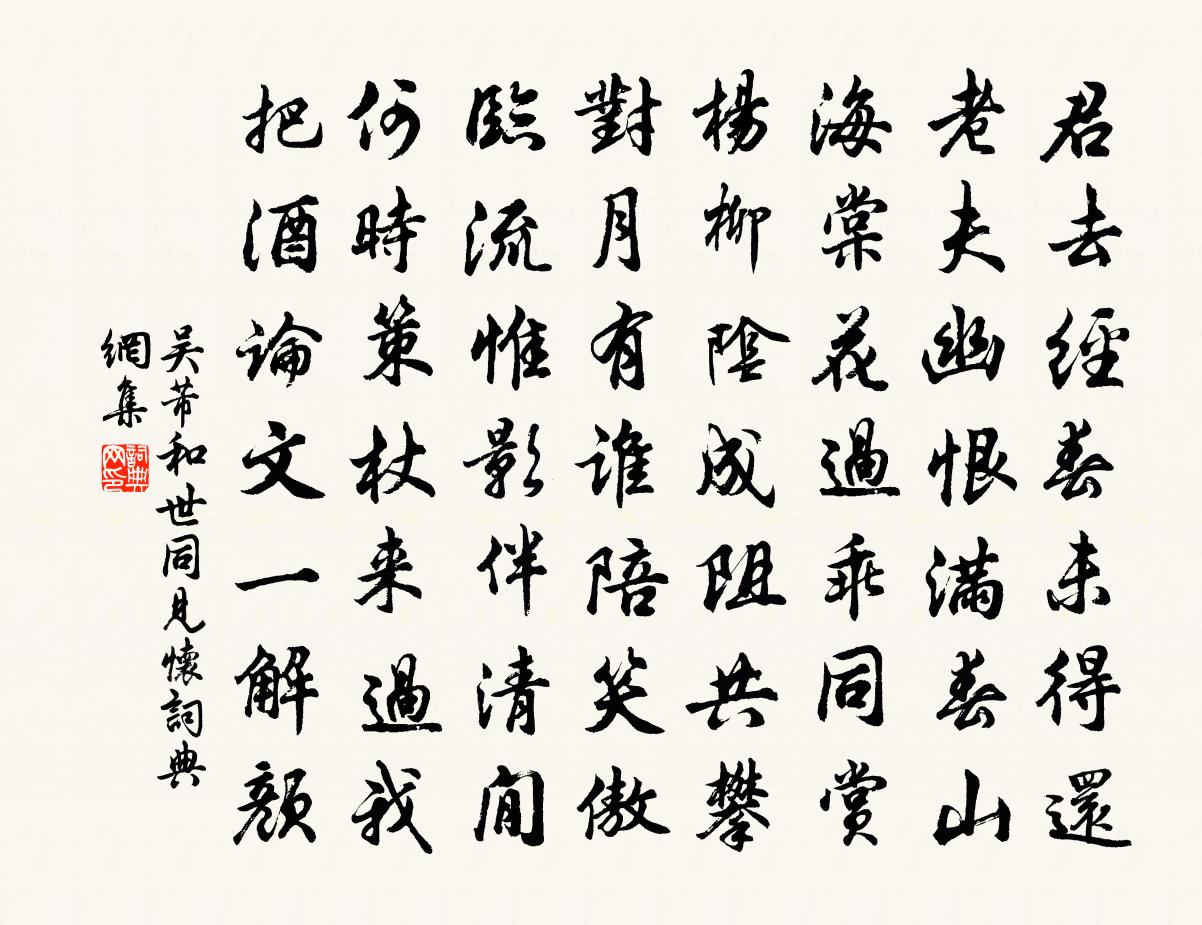 君去經春未得還
老夫幽恨滿春山
海棠花過乖同賞
楊柳陰成阻共攀
對月有誰陪笑傲
臨流惟影伴清閒
何時策杖来過我
把酒論文一解顏
吳芾和世同見懷詞典
網集
詞典
网印